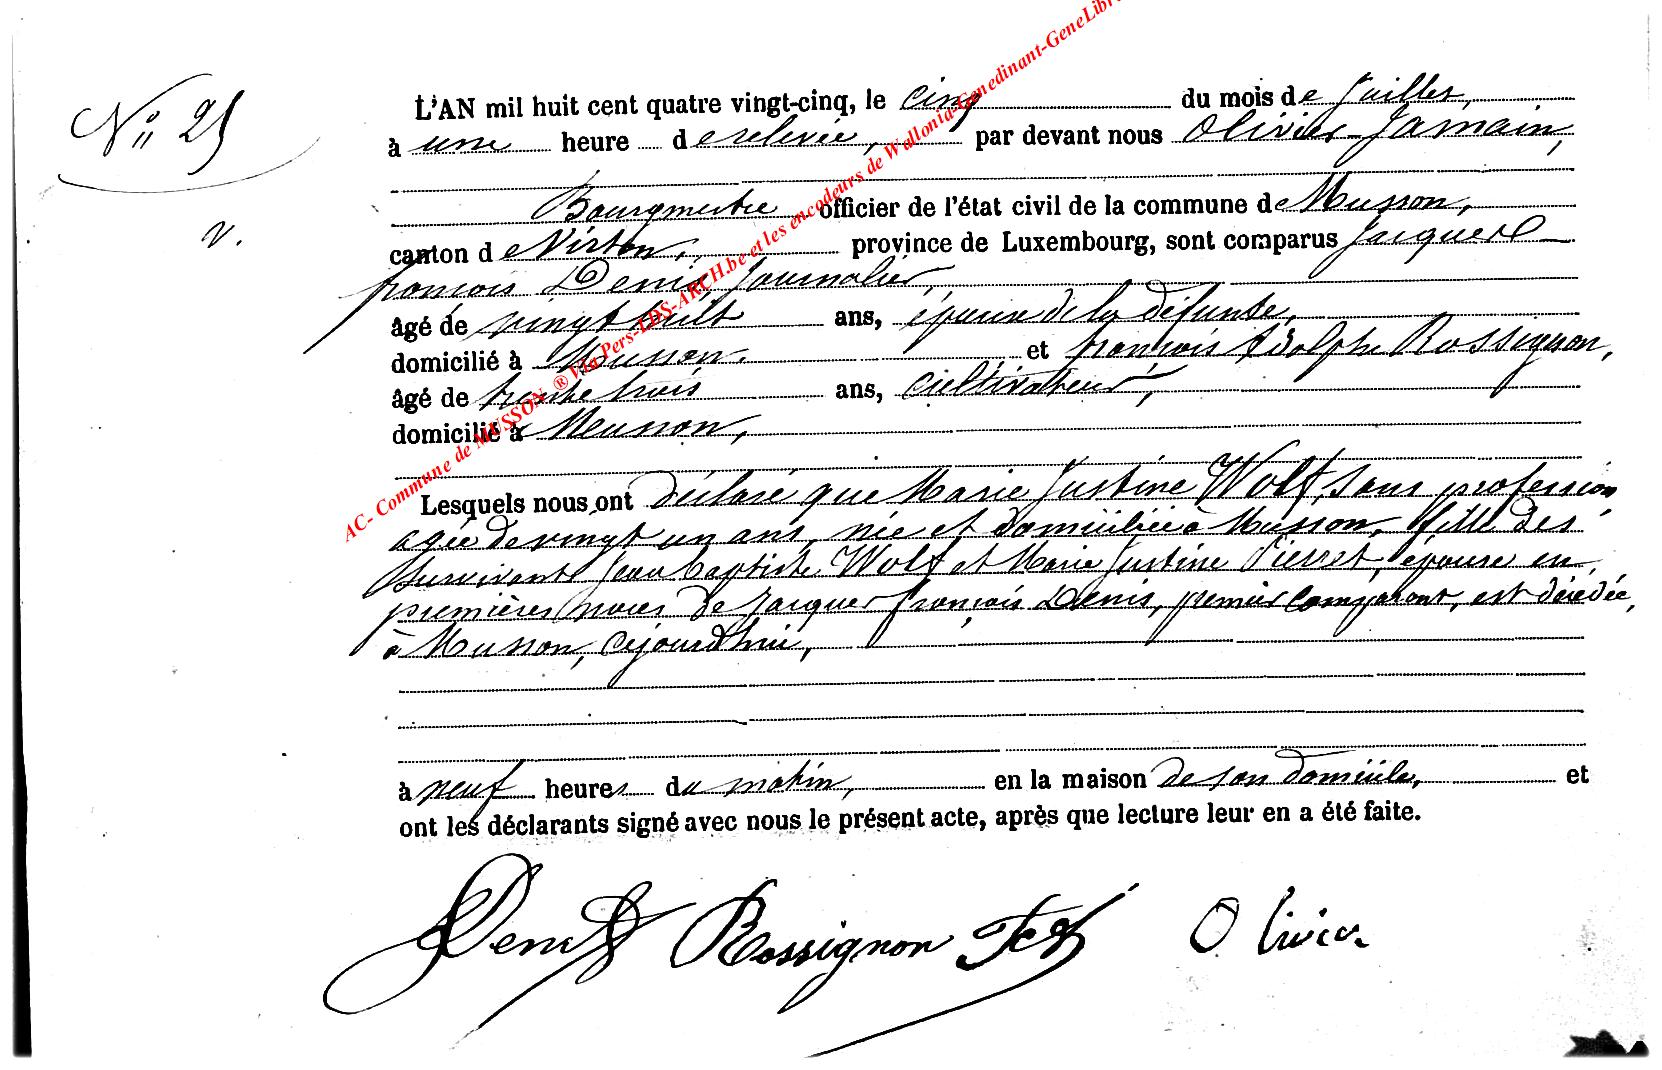 N° 25
v.
L'AN mil huit cent quatre vingt-cinq, le cinq du mois de Juillet,
à une heure de relevée, par devant nous Olivier Jamain,
Bourgmestre officier de l'état civil de la commune de Musson,
canton de Virton, province de Luxembourg, sont comparus Jacques
françois Denis Journalier,
âgé de vingt huit ans, époux de la défunte,
domicilié à Musson, et françois Adolphe Rossignon,
âgé de trente trois ans, cultivateur,
domicilié à Musson,
Lesquels nous ont déclaré que Marie Justine Wolf, sans profession,
agée de vingt un ans, née et domiciliée à Musson, fille des
survivants Jean Baptiste Wolf et Marie Justine Pierret, épouse en
premières noces de Jacques françois Denis, premier comparant, est décédée,
à Musson, cejourd'hui,
à neuf heures du matin, en la maison de son domicile, et
ont les déclarants signé avec nous le présent acte, après que lecture leur en a été faite.
Denis Rossignon Olivier
AC- Commune de MUSSON ® Via Pers-LDS-ARCH.be et les encodeurs de Wallonia-Genedinant-GeneLibr